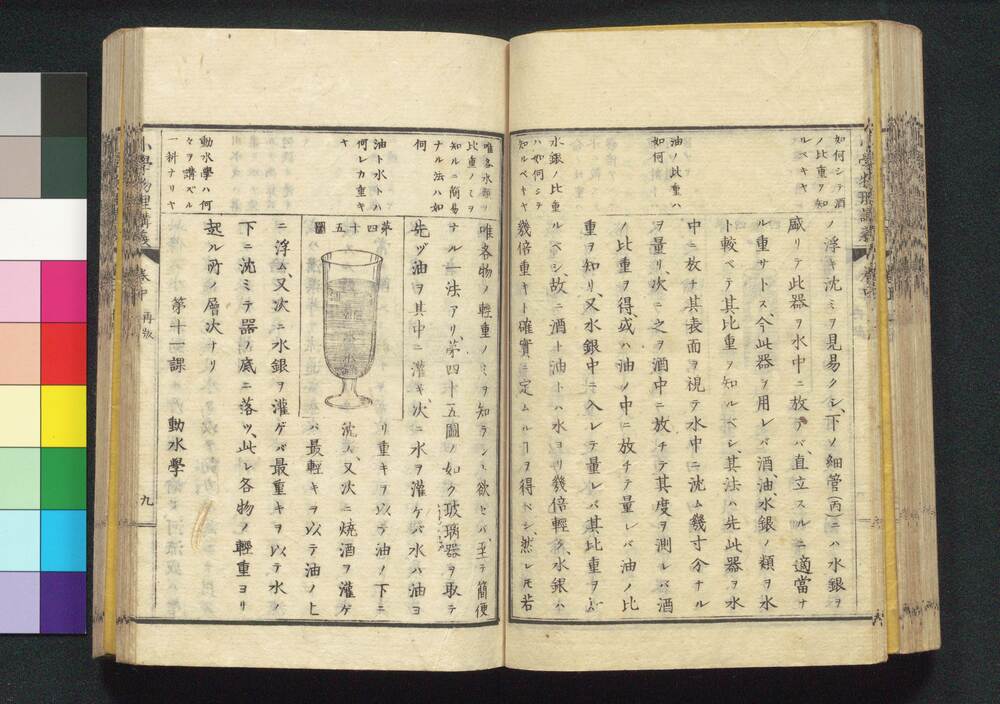 如何シテ酒
ノ比重ヲ知
ルベキヤ
油ノ比重ハ
如何
水銀ノ比重
ハ如何シテ
知ルベキヤ
ノ浮キ沈ミヲ見易クシ、下ノ細管(丙)ニハ水銀ヲ
盛リテ此器ヲ水中ニ放テバ、直立スルニ適當ナ
ル重サトス、今此器ヲ用レバ酒、油、水銀ノ類ヲ水
ト較ベテ其比重ヲ知ルベシ、其法ハ先此器ヲ水
中ニ放チ其表面ヲ視テ水中ニ沈ム幾寸分ナル
ヲ量リ、次ニ之ヲ酒中ニ放チテ其度ヲ測レバ酒
ノ比重ヲ得、或ハ油ノ中ニ放チテ量レバ油ノ比
重ヲ知リ、又水銀中ニ入レテ量レバ其比重ヲ知
ルベシ、故ニ酒ト油トハ水ヨリ幾倍輕ク、水銀ハ
幾倍重キト確實ニ定ムルヿヲ得ベシ、然レ𪜈若
唯各水類ノ
比重ノミヲ
知ルニ簡易
ナル法ハ如
何
油ト水トハ
何レカ重キ
ヤ
動水學ハ何
々ヲ講ズル
一科ナリヤ
唯各物ノ輕重ノミヲ知ラント欲セバ、至テ簡便
ナル一法アリ、第四十五圖ノ如ク玻璃器ヲ取テ
先ヅ油ヲ其中ニ灌キ、次ニ水ヲ灌ケバ水ハ油ヨ
第四十五圖
リ重キヲ以テ油ノ下ニ
沈ム、又次ニ燒酒ヲ灌ゲ
バ最輕キヲ以テ油ノ上
ニ浮ム、又次ニ水銀ヲ灌ゲバ最重キヲ以テ水ノ
下ニ沈ミテ器ノ底ニ落ツ、此レ各物ノ輕重ヨリ
起ル所ノ層次ナリ
第十一課 動水學
小學物理講義 卷中 再版 九